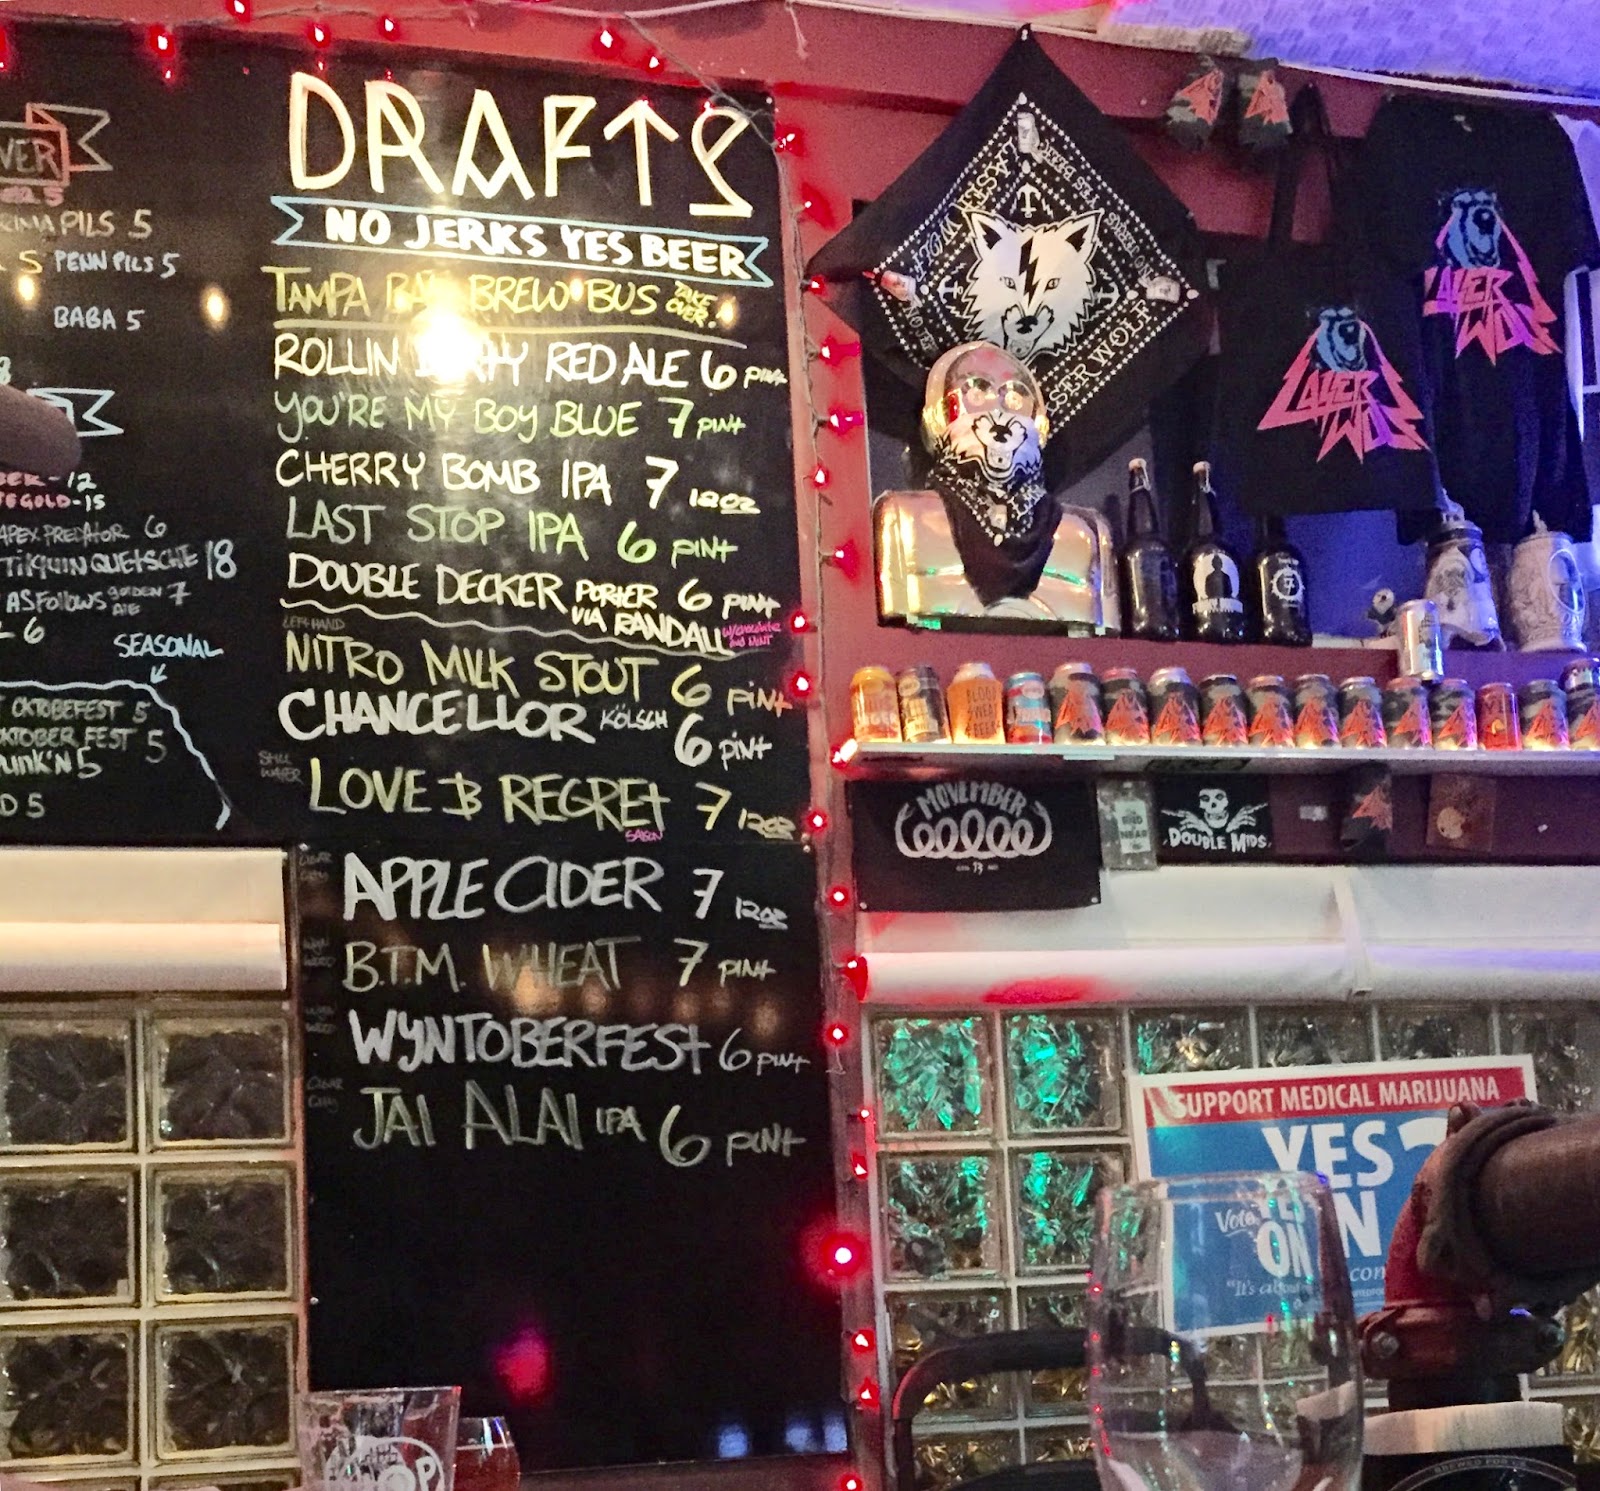 VER
5
RIMA PILS 5
5 PENN PILS 5
BABA 5
-12
GOLD-15
APEX PREDATOR 6
TILQUIN QUETSCHE 18
AS FOLLOWS GOLDEN ALE 7
6
SEASONAL
OKTOBEFEST 5
KTOBER FEST 5
UNK'N 5
D 5
DRAFTS
NO JERKS YES BEER
TAMPA BAY BREW BUS TAKE OVER!
ROLLIN DIRTY RED ALE 6 PINT
YOU'RE MY BOY BLUE 7 PINT
CHERRY BOMB IPA 7 12OZ
LAST STOP IPA 6 PINT
DOUBLE DECKER PORTER VIA RANDALL 6 PINT
LEFT HAND
NITRO MILK STOUT 6 PINT
CHANCELLOR KÖLSCH 6 PINT
STILL WATER
LOVE & REGRET 7 12OZ
SAISON
CIGAR CITY
APPLE CIDER 7 12OZ
WYN WOOD
B.T.M. WHEAT 7 PINT
WYN WOOD
WYNTOBERFEST 6 PINT
CIGAR CITY
JAI ALAI IPA 6 PINT
LASER WOLF
NO JERKS YES BEER
LASER WOLF
LAZER WOLF
LAZER WOLF
MOVEMBER
THE END IS NEAR
DOUBLE MIDS
SUPPORT MEDICAL MARIJUANA
YES 2
Vote YES
ON
"It's
BREWED FOR